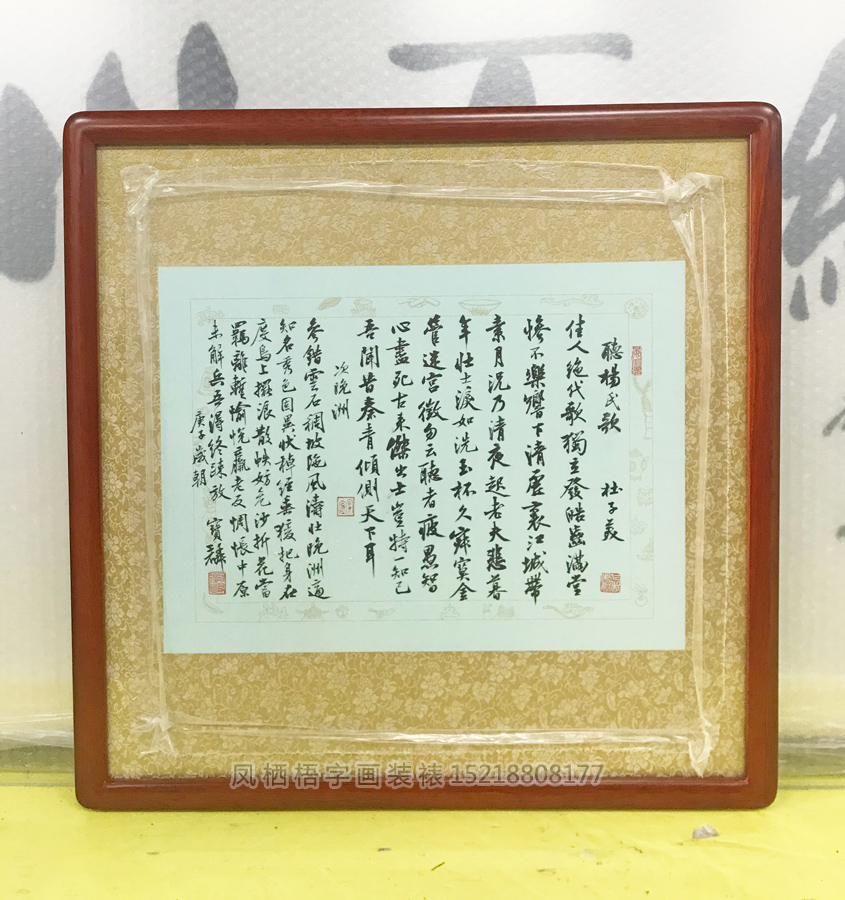 聽楊氏歌 杜子美
佳人絕代歌獨立發皓齒滿堂
慘不樂響下清虛裏江城帶
素月況乃清夜起老夫悲暮
年壯士淚如洗玉杯久寂寞金
管迷宮徵勿云聽者疲愚智
心盡死古來傑出士豈特一知己
吾聞昔秦青傾側天下耳
次晚洲
參錯雲石稠坡陁風濤壯晚洲適
知名秀色固異狀棹經垂猿把身在
度鳥上擺浪散帙妨危沙折花當
羈離暫愉悅羸老反惆悵中原
未解兵吾得終疎放
庚子歲朝 寶
凤栖梧字画装裱15218808177